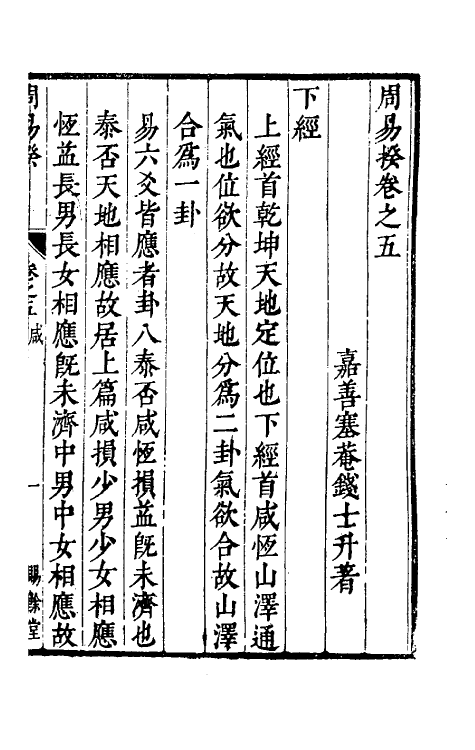 周易揆卷之五
嘉善塞菴錢士升著
下經
上經首乾坤天地定位也下經首咸恆山澤通
氣也位欲分故天地分爲二卦氣欲合故山澤
合爲一卦
易六爻皆應者卦八泰否咸恆損益旣未濟也
泰否天地相應故居上篇咸損少男少女相應
恆益長男長女相應旣未濟中男中女相應故
周易揆 卷之五 咸 一 賜餘堂